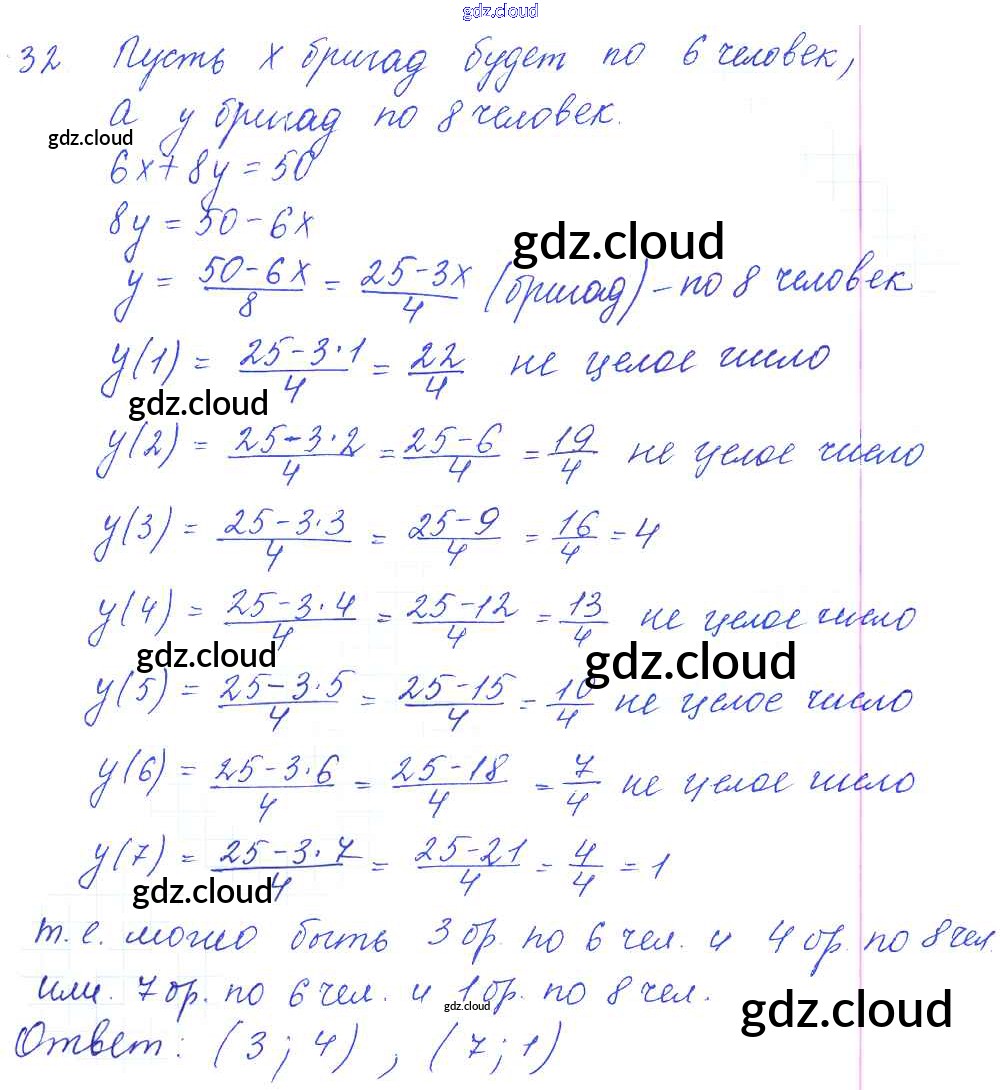 gdz.cloud
32 Пусть x бригад будет по 6 человек,
а y бригад по 8 человек.
gdz.cloud
6x+8y=50
8y=50-6x
gdz.cloud
y = (50-6x)/8 = (25-3x)/4 (бригад) - по 8 человек
y(1) = (25-3·1)/4 = 22/4 не целое число
gdz.cloud
y(2) = (25-3·2)/4 = (25-6)/4 = 19/4 не целое число
y(3) = (25-3·3)/4 = (25-9)/4 = 16/4 = 4
y(4) = (25-3·4)/4 = (25-12)/4 = 13/4 не целое число
gdz.cloud
gdz.cloud
y(5) = (25-3·5)/4 = (25-15)/4 = 10/4 не целое число
y(6) = (25-3·6)/4 = (25-18)/4 = 7/4 не целое число
y(7) = (25-3·7)/4 = (25-21)/4 = 4/4 = 1
gdz.cloud
т.е. могло быть 3 бр. по 6 чел. и 4 бр. по 8 чел.
или 7 бр. по 6 чел. и 1 бр. по 8 чел.
gdz.cloud
gdz.cloud
Ответ: (3; 4), (7; 1)